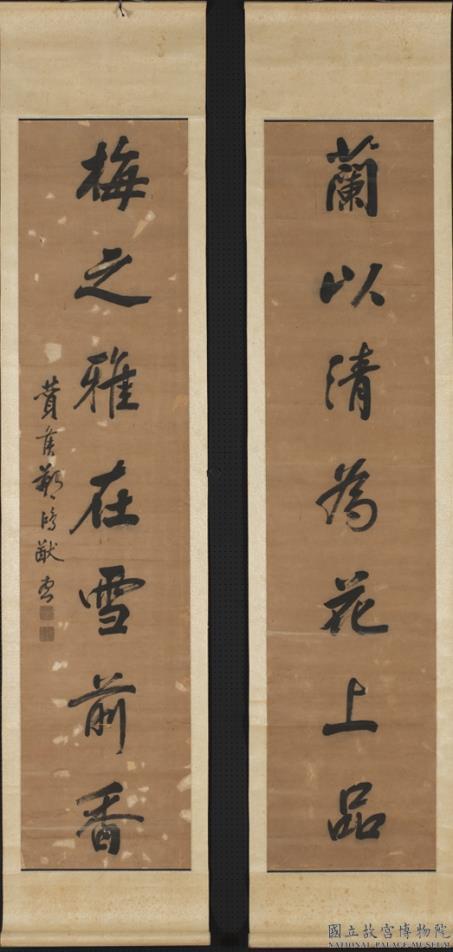 蘭以清為花上品
梅之雅在雪前香
鄭鴻猷書
國立故宮博物院
NATIONAL PALACE MUSEUM